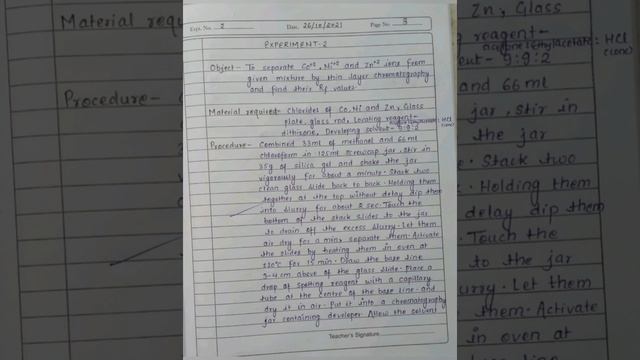 Expt. No. 2
Date 26/10/2021
Page No. 3
EXPERIMENT-2
Object:- To separate Co+2, Ni+2 and Zn+2 ions from
given mixture by thin layer chromatography
and find their Rf values.
Material required:- Chlorides of Co, Ni and Zn, Glass
plate, glass rod, Locating reagent-
dithizone, Developing solvent- 9:9:2
acetone:ethylacetate: HCl
(conc)
Procedure- Combined 33ml of methanol and 66 ml
chloroform in 125ml screwcap jar, stir in
35g of silica gel and shake the jar
vigorously for about a minute. Stack two
clean glass slide back to back. Holding them
together at the top without delay dip them
into slurry for about 2 sec. Touch the
bottom of the stack slides to the jar
to drain off the excess slurry. Let them
air dry for a min, separate them. Activate
the slides by heating them in oven at
110°C for 15 min. Draw the base line
3-4 cm above of the glass slide. Place a
drop of spotting reagent with a capillary
tube at the centre of the base line and
dry it in air. Put it into a chromatography
jar containing developer. Allow the solvent
Teacher's Signature
Material requi
Procedure-
Zn, Glass
g reagent-
acetone:ethylacetate: HCl
(conc)
ent- 9:9:2
and 66 ml
jar, stir in
the jar
. Stack two
. Holding them
delay dip them
. Touch the
to the jar
urry. Let them
them. Activate
in oven at